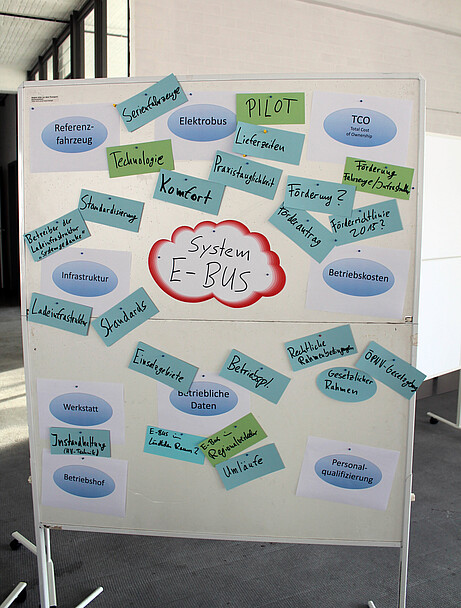 Serienfahrzeuge
Referenz-
fahrzeug
Elektrobus
PILOT
TCO
Total Cost
of Ownership
Lieferzeiten
Technologie
Praxistauglichkeit
Komfort
Förderung
Fahrzeuge/Infrastruktur
Förderung?
Standardisierung
Förderantrag
Förderrichtlinie
2015?
Betreiber der
Ladeinfrastruktur
"Systemgedanke"
System
E-BUS
Infrastruktur
Betriebskosten
Ladeinfrastruktur
Standards
Rechtliche
Rahmenbedingungen
Einsatzgebiete
Betriebspl.
Gesetzlicher
Rahmen
ÖPNV-Gesetzgebung
Werkstatt
Betriebliche
Daten
Instandhaltung
(HV-Technik)
E-Bus im
Ländlichen Raum?
E-Bus im
Regionalverkehr
Umläufe
Betriebshof
Personal-
qualifizierung